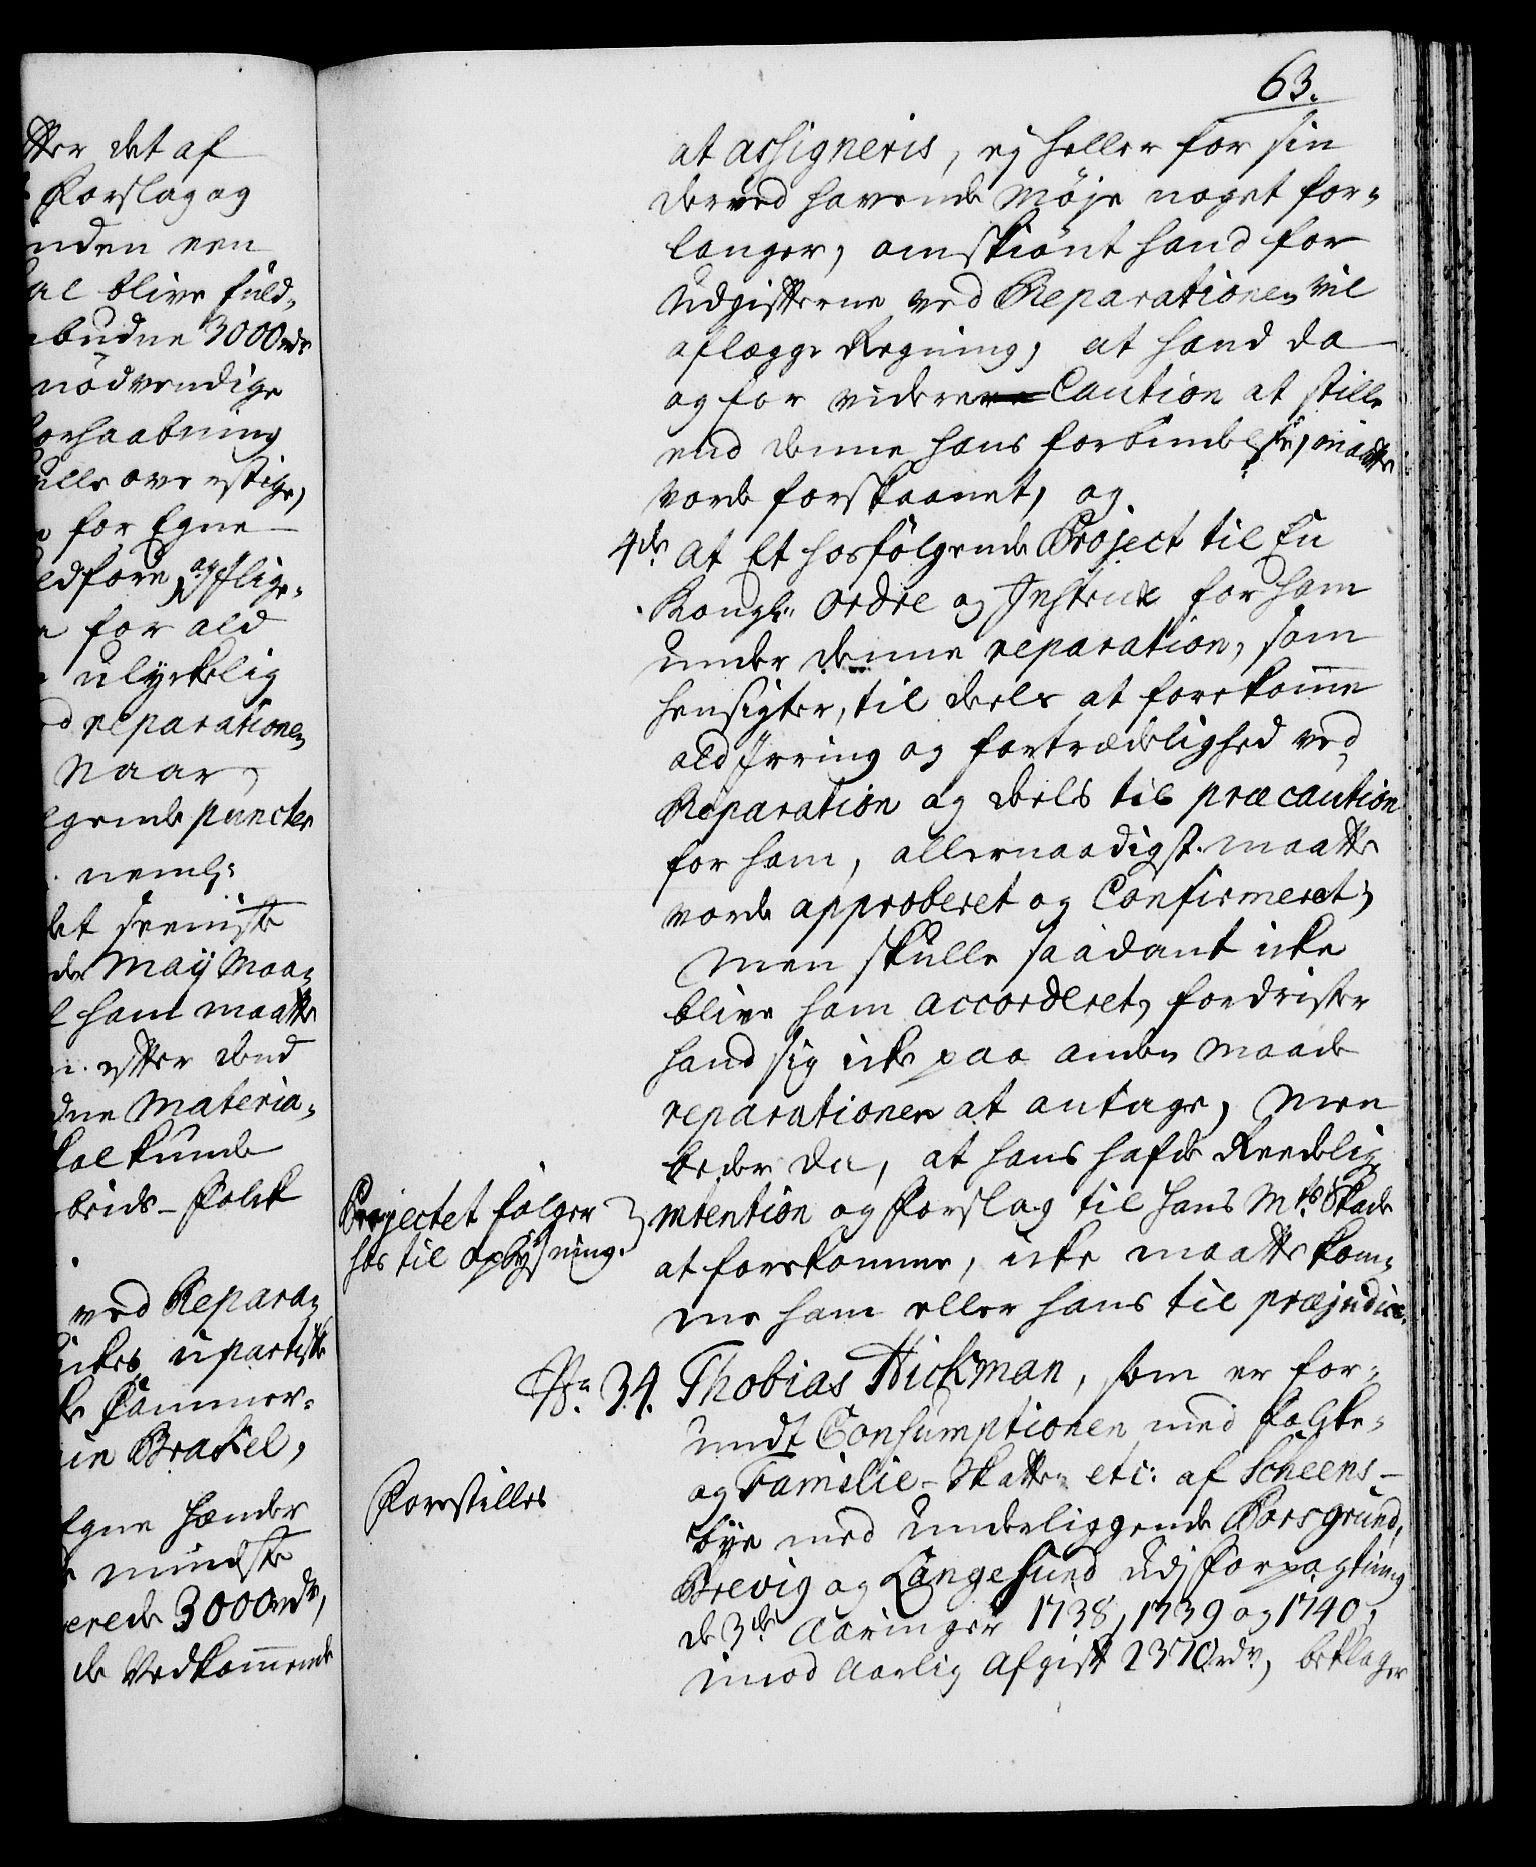 tter det af
Forslag og
inden een
al blive fuld-
budne 3000 rdr
nödvendige
forhaabning
ulle overstige,
for Egne
edfore, og Slige-
for ald
ulyckelig
d reparationen
Naar
lgende puncter
nemlig:
det seeniste
de Maij Maa-
l ham maatte
efter dend
dne Materia-
kunde
beids-Folck
ved Repara-
upartiske
Cammer-
in Brasel,
Egne Hænder
mindste
erede 3000 rdr,
de Vedkommende
63.
at assigneris, ej heller for sin
derved havende Möje noget for-
langer, omskiönt hand for
Udgifterne ved Reparationen vil
aflægge Regning, at hand da
og for videre Caution at stille
end denne hans forbindelse, maatte
vorde forskaanet, og
4de. At Et hosfölgende Project til En
Kongl: Ordre og Instrux for ham
under denne reparation, som
hensigter, til deels at forekomme
ald Irring og fortrædelighed ved
Reparation og deels til præcaution
for ham, allernaadigst. maatte
vorde approberet og Confirmeret,
Men skulle saadant icke
blive ham accorderet, fordrister
hand sig icke paa anden Maade
reparationen at antage, Men
beder da, at hans hafde Reedelig
intention og Forslag til hans Mts: Skade
at forekomme, icke maatte kom-
me ham eller hans til præjudice.
Projectet fölger
hos til oplysning.
No. 34. Thobias Hickman, som er for-
undt Consumptionen med Folcke-
og Familie-Skatten etc: af Scheens-
bye med Underliggende Porsgrund,
Brevig og Langesund Udj Forpagtning
de 3de Aaringer 1738, 1739 og 1740,
imod Aarlig Afgift 2370 rdr, beklager
Forestilles